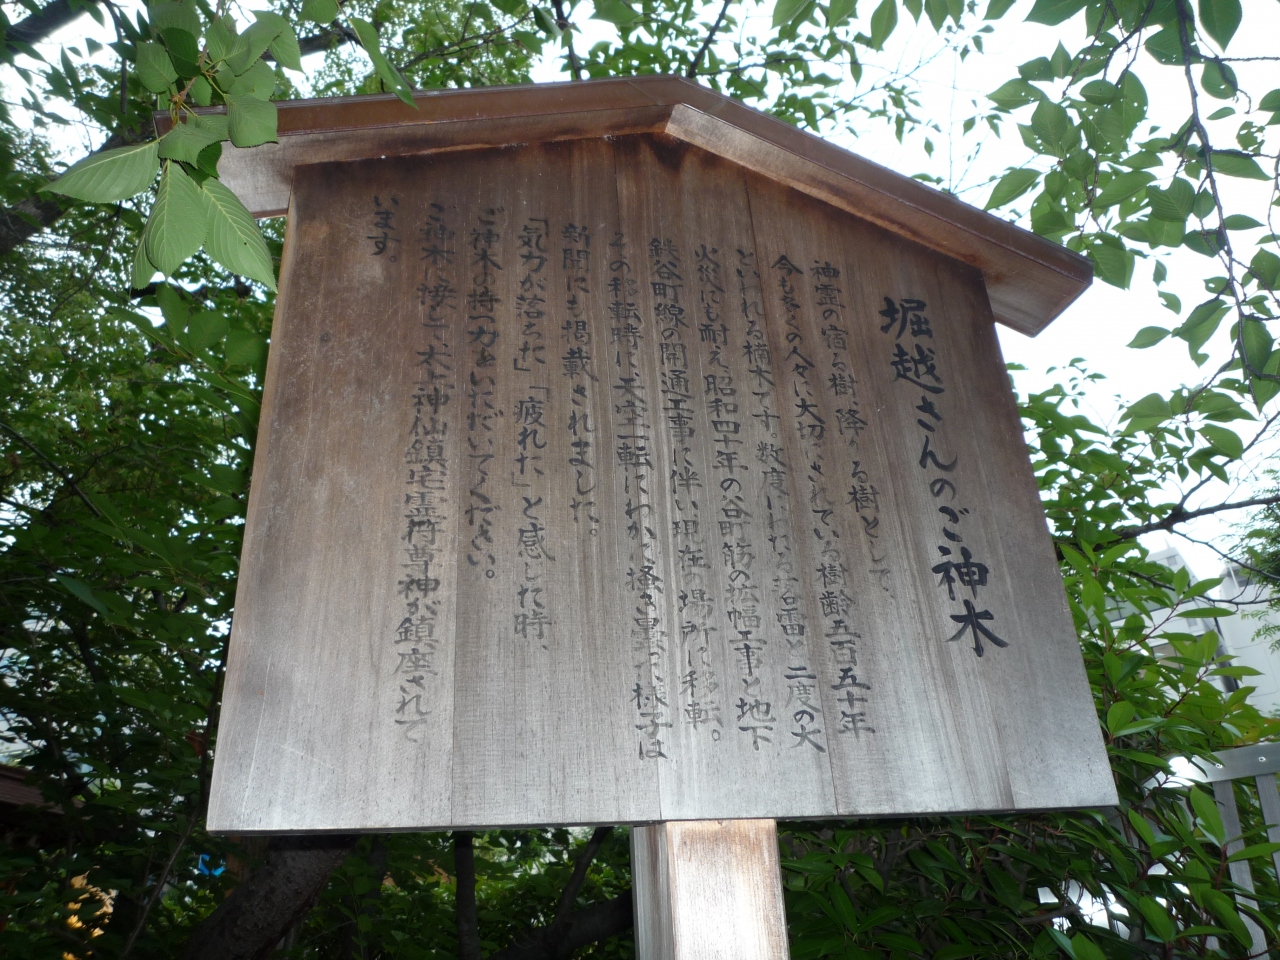 堀越さんのご神木
神霊の宿る樹、降りる樹として、
今も多くの人々に大切にされている樹齢五百五十年
といわれる楠木です。数度にわたる落雷と二度の大
火災にも耐え、昭和四十年の谷町筋の拡幅工事と地下
鉄谷町線の開通工事に伴い現在の場所に移転。
この移転時に、天空一転にわかに掻き曇った様子は
新聞にも掲載されました。
「気力が落ちた」「疲れた」と感じた時、
ご神木の持つ力をいただいてください。
ご神木に接して、太上神仙鎮宅霊符尊神が鎮座されて
います。